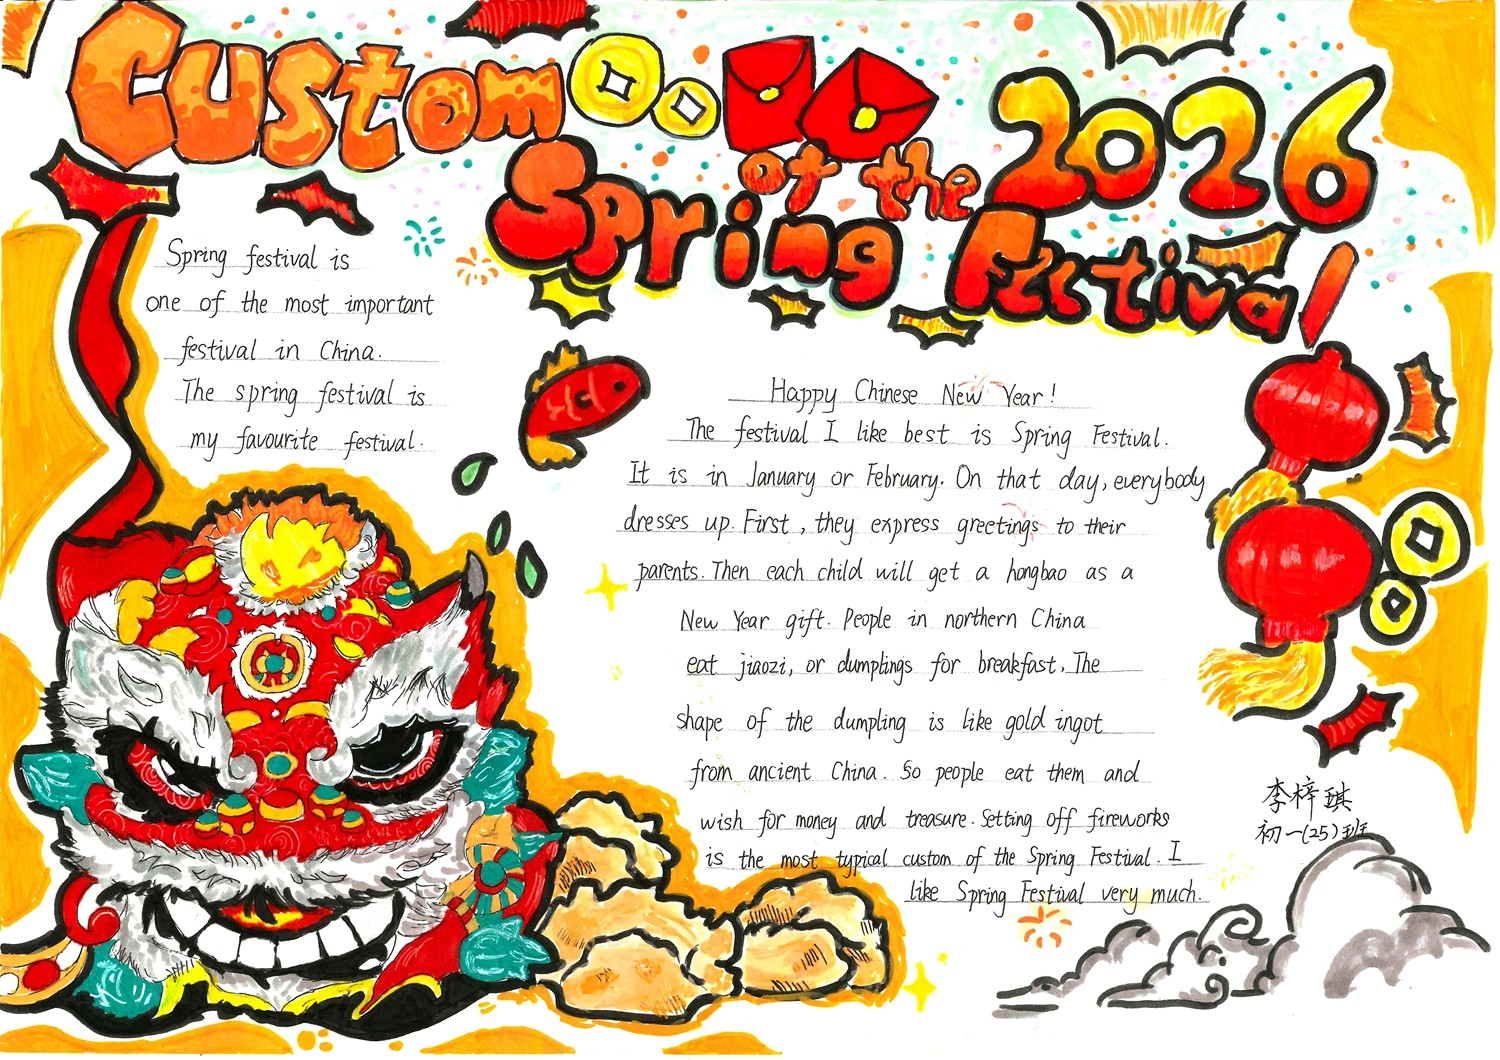 Custom
of the
2026
Spring Festival
Spring festival is
one of the most important
festival in China.
The spring festival is
my favourite festival.
Happy Chinese New Year!
The festival I like best is Spring Festival.
It is in January or February. On that day, everybody
dresses up. First, they express greetings to their
parents. Then each child will get a hongbao as a
New Year gift. People in northern China
eat jiaozi, or dumplings for breakfast. The
shape of the dumpling is like gold ingot
from ancient China. So people eat them and
wish for money and treasure. Setting off fireworks
is the most typical custom of the Spring Festival. I
like Spring Festival very much.
李梓琪
初一(25)班